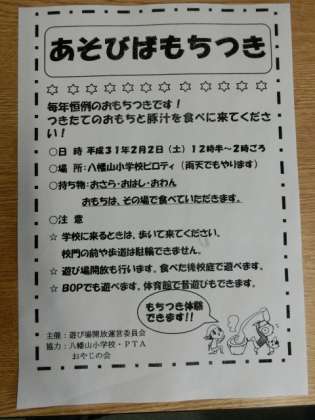 あそびばもちつき
毎年恒例のおもちつきです！
つきたてのおもちと豚汁を食べに来てくださ
い！
○日　時　平成３１年２月２日（土）１２時半～２時ごろ
○場　所：八幡山小学校ピロティ（雨天でもやります）
○持ち物：おさら・おはし・おわん
おもちは、その場で食べていただきます。
○注　意
☆ 学校に来るときは、歩いて来てください。
校門の前や歩道は駐輪できません。
☆ 遊び場開放も行います。食べた後校庭で遊べます。
☆ BOPでも遊べます。体育館で昔遊びもできます。
もちつき体験
できます!!
主催：遊び場開放運営委員会
協力：八幡山小学校・ＰＴＡ
おやじの会